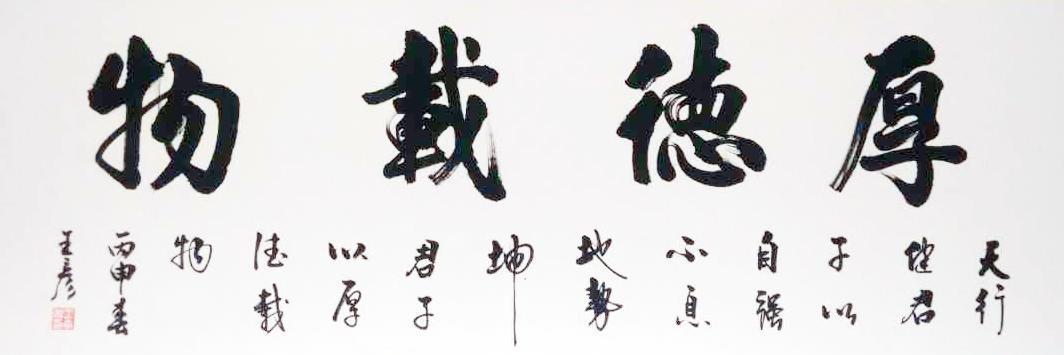 厚德載物
天行
健君
子以
自强
不息
地勢
坤
君子
以厚
德載
物
丙申春
王彦